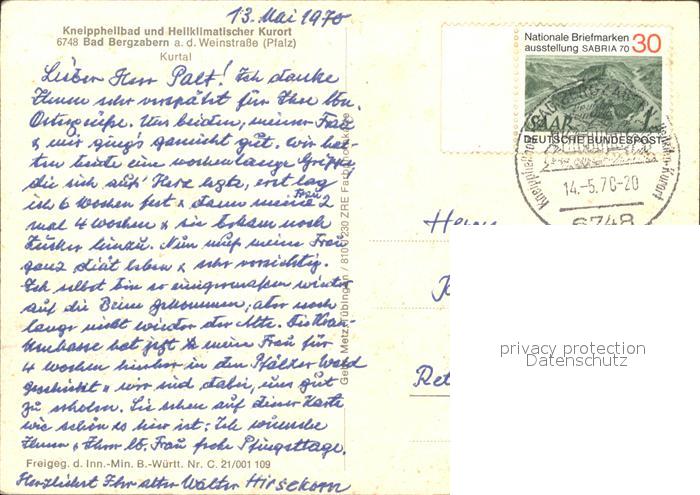 13. Mai 1970
Kneippheilbad und Heilklimatischer Kurort
6748 Bad Bergzabern a. d. Weinstraße (Pfalz)
Kurtal
Lieber Herr Palt! Ich danke
Ihnen sehr verspätet für Ihre lbn.
Ostergrüße. Uns beiden, meiner Frau
& mir ging's garnicht gut. Wir hat-
ten beide eine wochenlange Grippe
die sich auf's Herz legte, erst lag
ich 6 Wochen fest & dann meine Frau 2
mal 4 Wochen & sie bekam noch
Zucker hinzu. Nun muß meine Frau
ganz diät leben & sehr vorsichtig.
Ich selbst bin so einigermaßen wieder
auf die Beine gekommen, aber noch
lange nicht wieder der Alte. Die Kran-
kenkasse hat jetzt meine Frau für
4 Wochen hierher in den Pfälzer Wald
geschickt & wir sind dabei, uns gut
zu erholen. Sie sehen auf dieser Karte
wie schön es hier ist. Ich wünsche
Ihnen & Ihrer lb. Frau frohe Pfingsttage.
Freigeg. d. Inn.-Min. B.-Württ. Nr. C. 21/001 109
Herzlichst Ihr alter Walter Hirsekorn
Gebr. Metz, Tübingen / 8100 230 ZRE Farb
Nationale Briefmarken
ausstellung SABRIA 70
30
SAAR
DEUTSCHE BUNDESPOST
BAD BERGZABERN
Kneippheilbad
Heilklim. Kurort
14.-5.70-20
6748
Herrn
Ret
privacy protection
Datenschutz